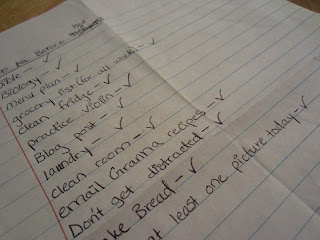 Biology - ✓
menu plan - ✓
grocery list (for all week) - ✓
clean fridge - ✓
practice violin - ✓
Blog post - ✓
laundry - ✓
clean room - ✓
email Granma recipes - ✓
Don't get distracted - ✓
Bread - ✓
at least one picture today - ✓